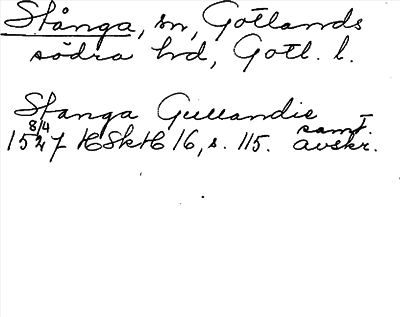 Stånga, sn, Gotlands
södra hd, Gotl. l.
Stanga Gullandie
15 8/4 27 HSkH 16, s. 115. samt. avskr.